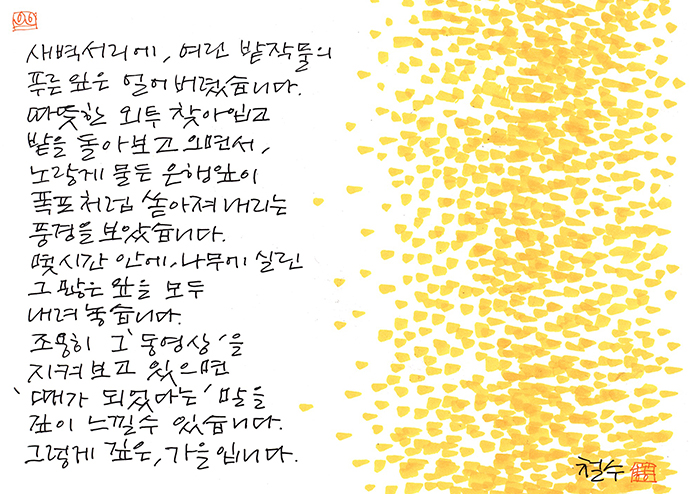 새벽서리에, 여린 밭작물의
푸른 잎은 얼어버렸습니다.
따뜻한 외투 찾아입고
밭을 돌아보고 오면서,
노랗게 물든 은행잎이
폭포처럼 쏟아져내리는
풍경을 보았습니다.
몇시간 안에, 나무에 실린
그 많은 잎을 모두
내려놓습니다.
조용히 그 '동영상'을
지켜보고 있으면
'때가 되었다는' 말을
깊이 느낄 수 있습니다.
그렇게 깊은, 가을입니다.
철수